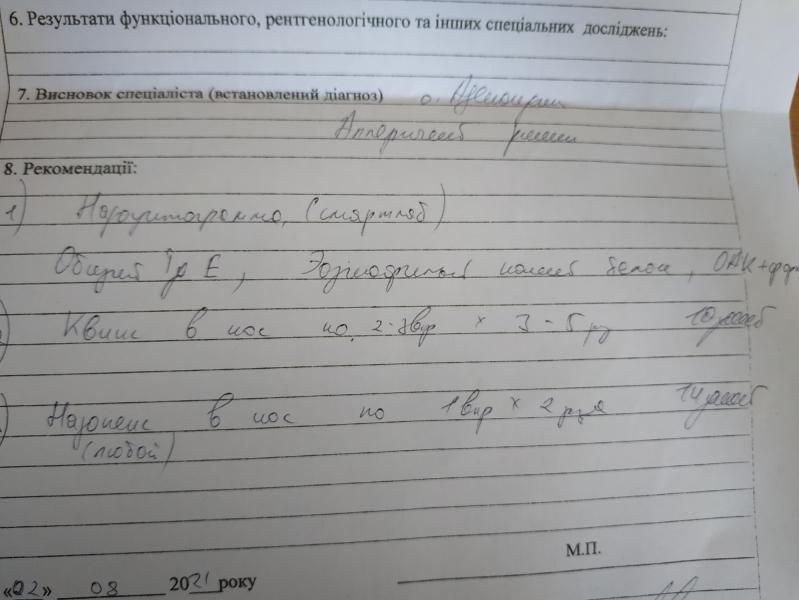 6. Результати функціонального, рентгенологічного та інших спеціальних досліджень:
7. Висновок спеціаліста (встановлений діагноз) о.
8. Рекомендації:
1) Назоцитограмма, (смартлаб)
Общий Ig E, Эозинофильный белок, ОАК+
Квикс в нос по 2-3 впр × 3-5 р 10 дней
Назонекс в нос по 1 впр × 2 раза 14 дней
(любой)
М.П.
«02» 08 2021 року